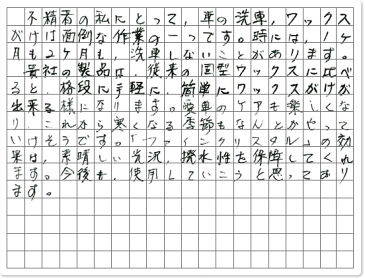 不精者の私にとって、車の洗車、ワックス
がけは面倒な作業の一つです。時には、1ヶ
月も2ヶ月も、洗車しないことがあります。
貴社の製品は、従来の固型ワックスに比べ
ると、格段に手軽に、簡単にワックスがけが
出来る様になります。愛車のケアも楽しくな
り、これから寒くなる季節もなんとかやって
いけそうです。「ファインクリスタル」の効
果は、素晴しい光沢、撥水性を保障してくれ
ます。今後も、使用していこうと思っており
ます。